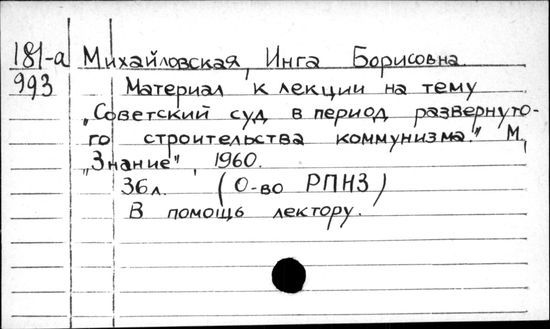 181-а Михайловская, Инга Борисовна.
993 Материал к лекции на тему
„Советский суд в период развернуто-
го строительства коммунизма." М,
„Знание", 1960.
36л. (О-во РПНЗ)
В помощь лектору.